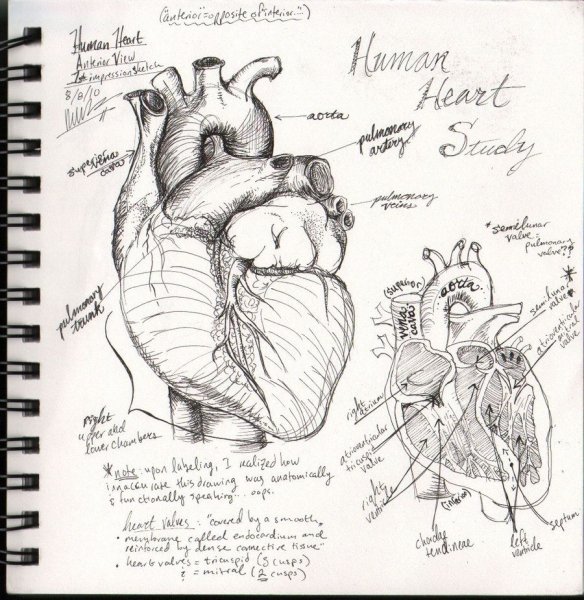 ("anterior" = opposite of interior...")
Human Heart
Anterior View
1st impression sketch
8/8/10
Human
Heart
Study
aorta
pulmonary
artery
superior vena
cava
pulmonary
veins
pulmonary
trunk
right
upper and
lower chambers
* semilunar
valve =
pulmonary
valve??
(superior)
vena
cava
aorta
semilunar
valve *
atrioventricular
mitral
valve
right
atrium
atrioventricular
tricuspid
valve
right
ventricle
(inferior)
chordae
tendineae
left
ventricle
septum
*note: upon labeling, I realized how
inaccurate this drawing was anatomically
& functionally speaking... oops.
heart valves: "covered by a smooth,
• membrane called endocardium and
reinforced by dense connective tissue"
• heart valves = tricuspid (3 cusps)
& = mitral (2 cusps)